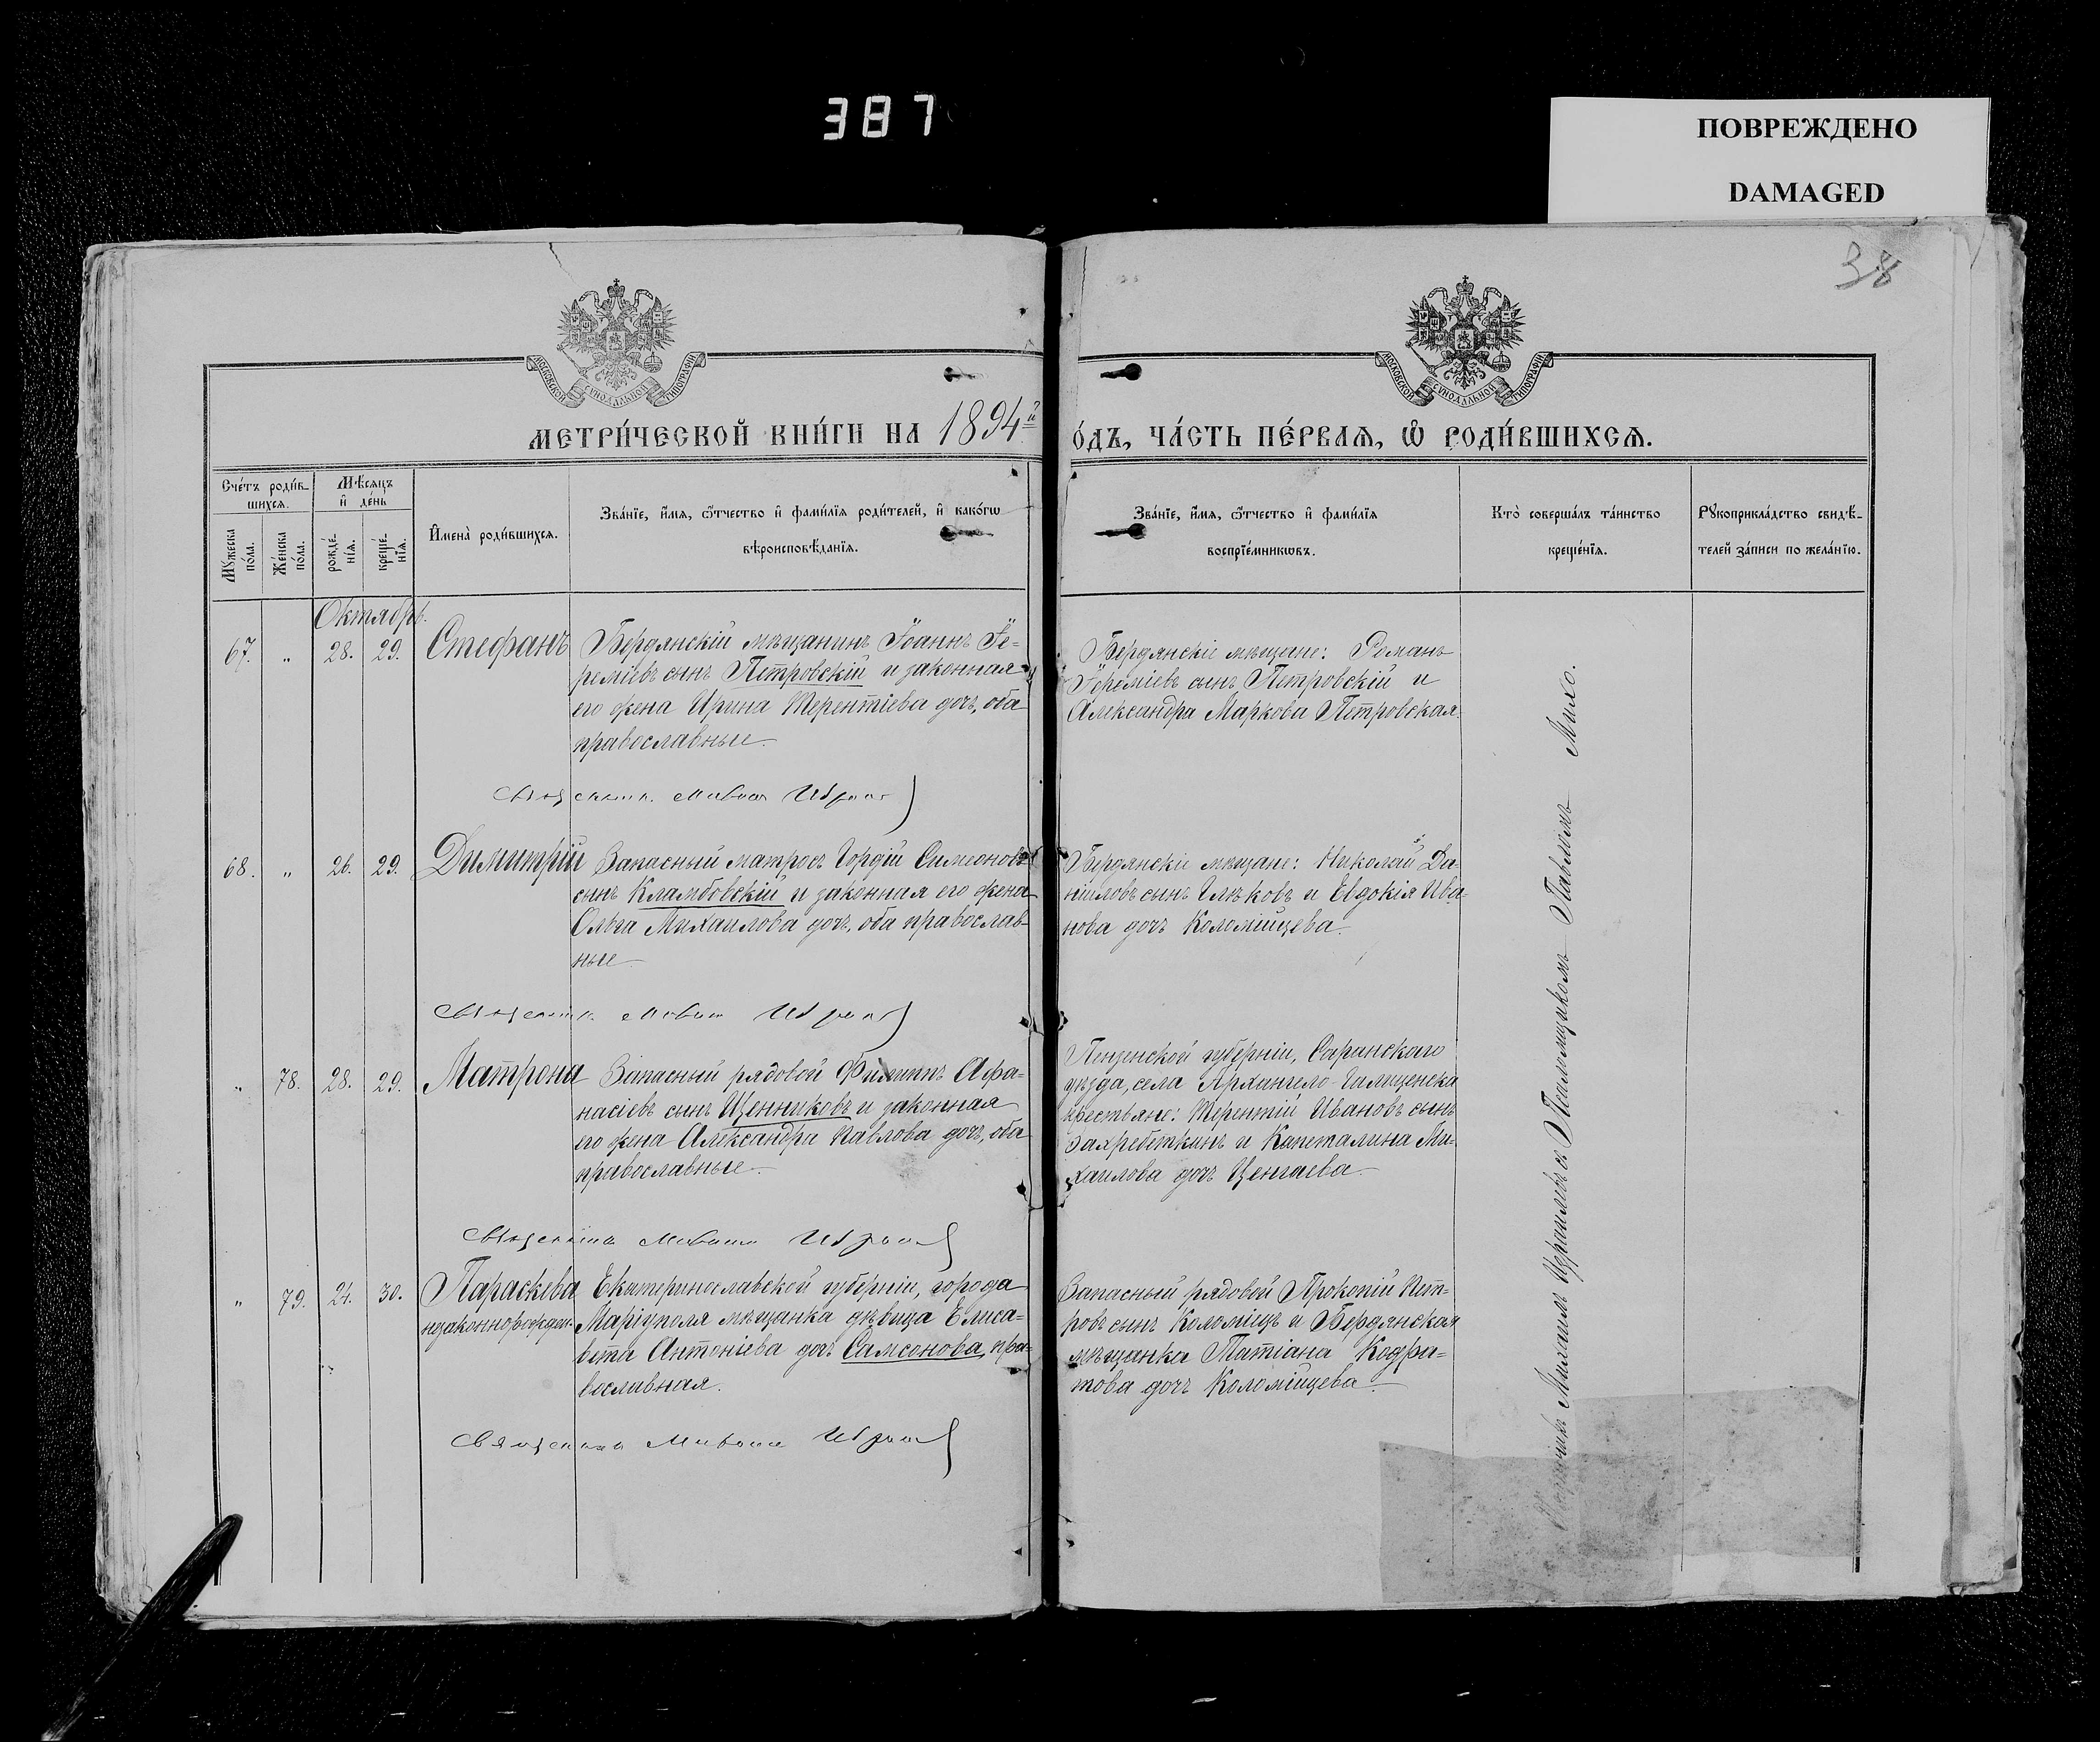 387
ПОВРЕЖДЕНО
DAMAGED
38
МОСКОВСКОЙ СУНОДАЛЬНОЙ ТИПОГРАФІИ
МОСКОВСКОЙ СУНОДАЛЬНОЙ ТИПОГРАФІИ
МЕТРИ́ЧЕСКОЙ КНИ́ГИ НА 1894й
О́ДЪ, ЧА́СТЬ ПЕ́РВАѦ, Ѡ҆ РОДИ́ВШИХСѦ.
Сче́тъ роди́в-
шихсѧ.
Мѣ́сѧцъ
и҆ де́нь
Мꙋжеска по́ла.
Же́нска по́ла.
рожде́-
нїѧ.
креще́-
нїѧ.
И҆мена̀ роди́вшихсѧ.
Зва́нїе, и҆́мѧ, ѻ҆́тчество и҆ фами́лїѧ роди́телей, и҆ како́гѡ
вѣроисповѣ́данїѧ.
Зва́нїе, и҆́мѧ, ѻ҆́тчество и҆ фами́лїѧ
воспрїе́мникѡвъ.
Кто̀ соверша́лъ та́инство
креще́нїѧ.
Рꙋкоприкла́дство свидѣ́-
телей за́писи по жела́нїю.
Октябрь.
67. „ 28. 29. Стефанъ
Бердянскій мѣщанинъ Іоаннъ Іе-
реміевъ сынъ Петровскій и законная
его жена Ирина Терентіева дочь, оба
православные.
Бердянскіе мѣщане: Романъ
Іереміевъ сынъ Петровскій и
Александра Маркова Петровская.
68. „ 26. 29. Димитрій
Запасный матросъ Гордій Симеоновъ
сынъ Кламбовскій и законная его жена
Ольга Михаилова дочь, оба православ-
ные
Бердянскіе мѣщане: Николай Да-
ніиловъ сынъ и Евдокія Ива-
нова дочь Коломійцева.
„ 78. 28. 29. Матрона
Запасный рядовой Филиппъ Афа-
насіевъ сынъ Щенниковъ и законная
его жена Александра Павлова дочь, оба
православные.
Пензенской губерніи, Саранскаго
уѣзда, села Архангело-
крестьяне: Терентій Ивановъ сынъ
и Капеталина Ми-
хаилова дочь
„ 79. 24. 30. Параскева
незаконнорожден.
Екатеринославской губерніи, города
Маріуполя мѣщанка дѣвица Елиса-
вета Антоніева дочь Самсонова, пра-
вославная.
Священникъ
Запасный рядовой Прокопій Пет-
ровъ сынъ Коломіецъ и Бердянская
мѣщанка Татіана Кодра-
това дочь Коломійцева.
Священникъ Михаилъ Израилевъ съ Псаломщикомъ Павломъ